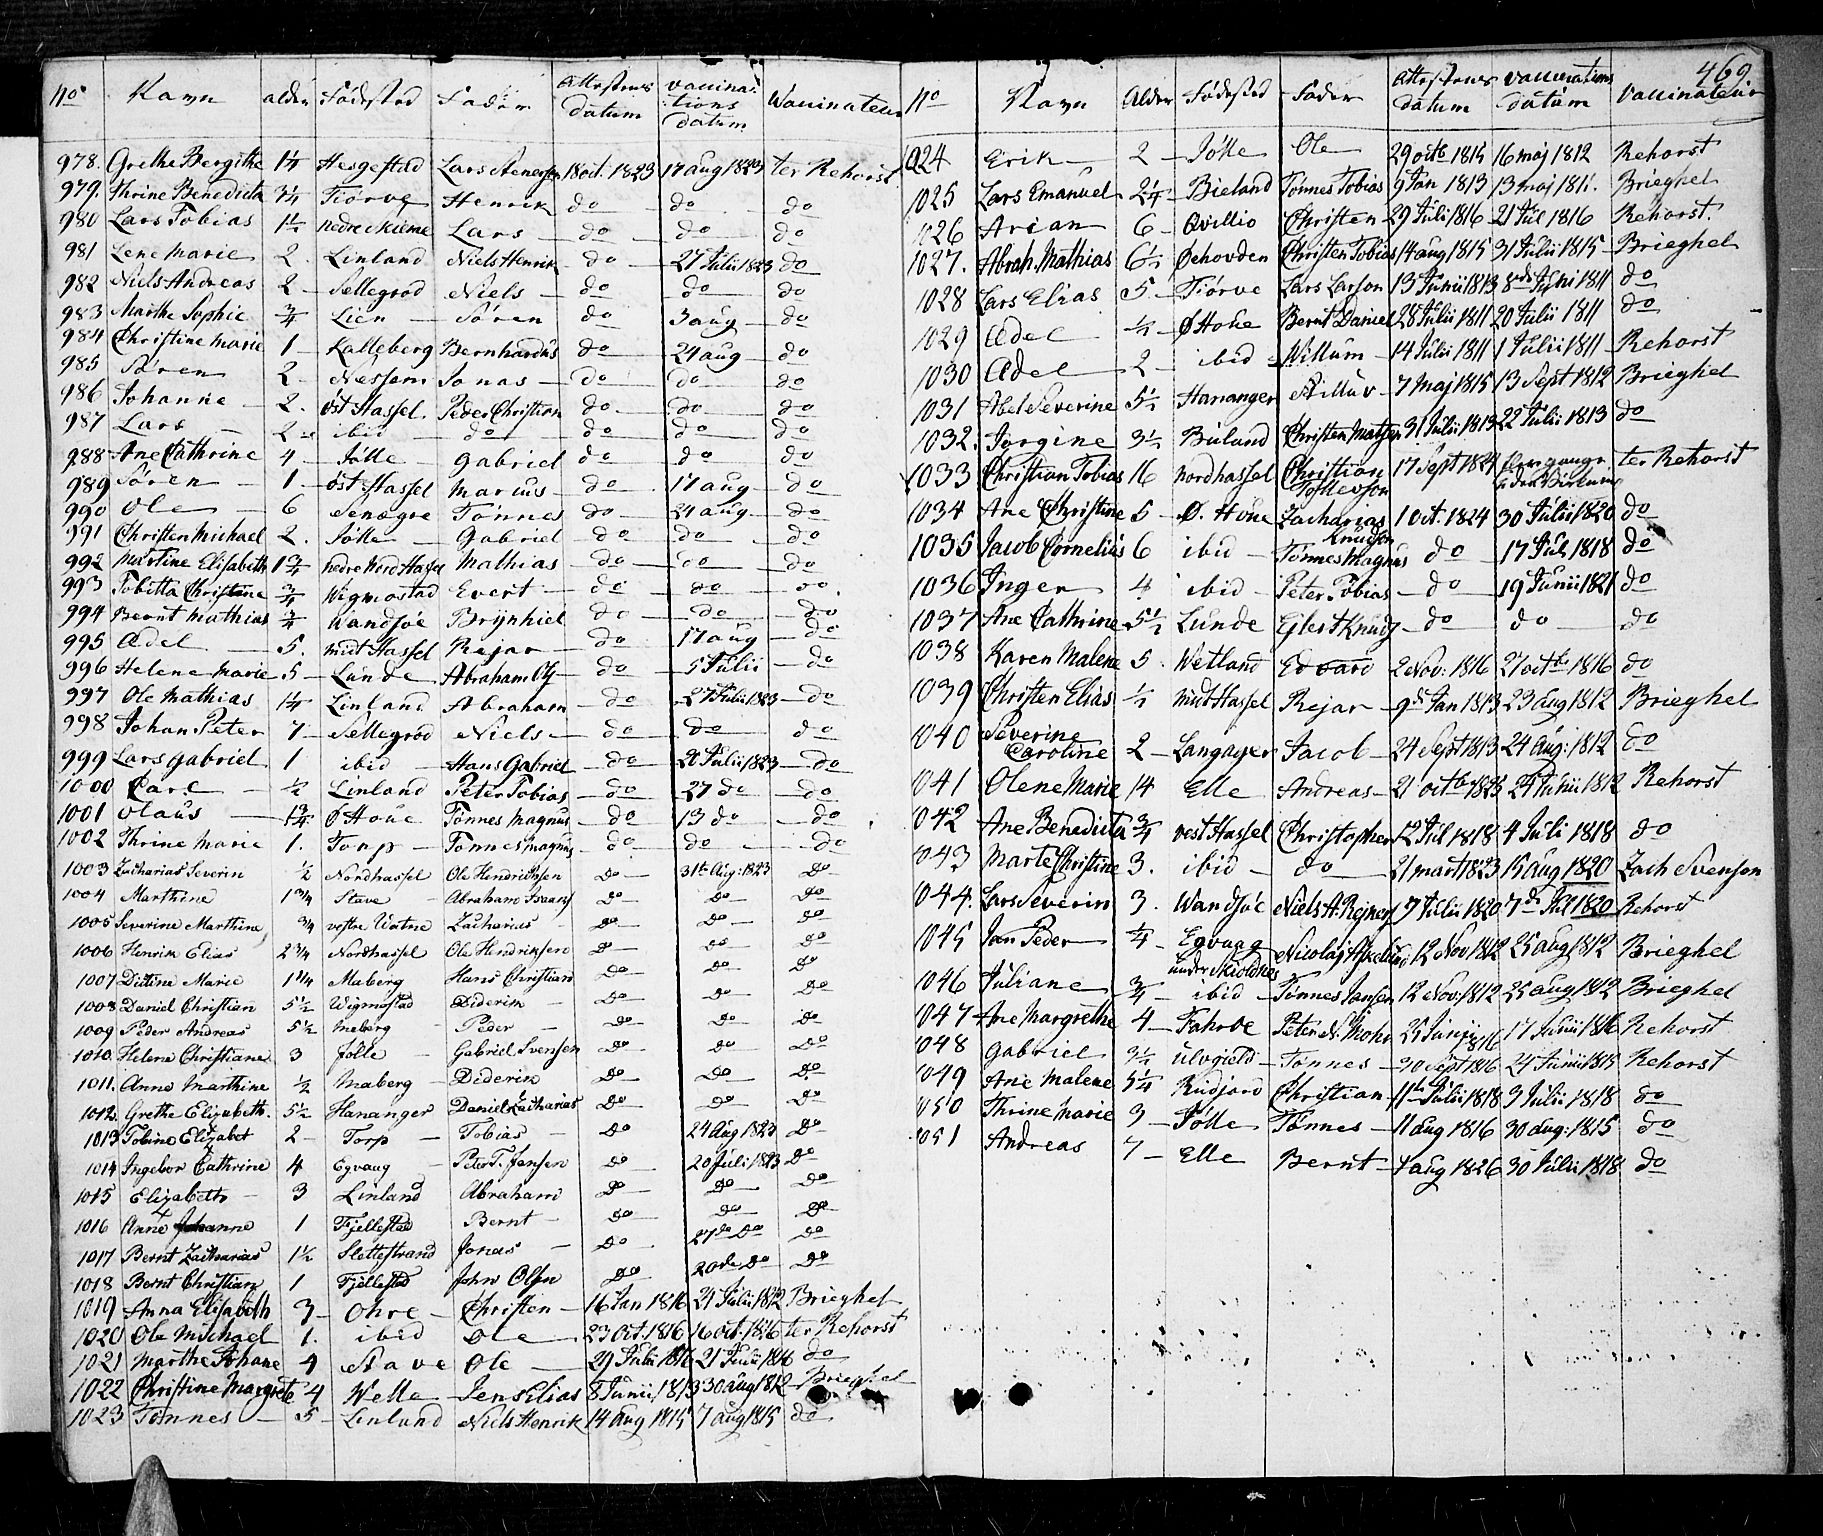 469.
No Navn alder Fødested Fader Attestens datum vaccinations datum Vaccinateur
978. Grethe Bergithe 1¼ Hesgestad Lars Stenersen 18 oct. 1823 17 aug 1823 ter Rehorst
979. Thrine Benedicta ¾ Tiørve Henrik do do do
980 Lars Tobias 1½ nedre Kieme Lars do do do
981 Lene Marie 2 Linland Niels Henrik do 27 Julii 1823 do
982 Niels Andreas 2 Sellegrod Niels do do do
983 Marthe Sophie ¾ Lien Søren do 3 aug do
984 Christine Marie 1 Kalleberg Bernhardus do 24 aug do
985 Søren 2 Nessem Jonas do do do
986 Johanne 2. øst Hassel Peder Christian do do do
987 Lars 2 ibid do do do do
988 Ane Cathrine 4 Jølle Gabriel do do do
989 Søren 1 øst Hassel Marcus do 17 aug do
990 Ole 6 Senegre Tønnes do 24 aug do
991 Christen Michael 2. Jølle Gabriel do do do
992 Martine Elisabeth 1¾ nedre Nord Hassel Mathias do do do
993 Tobitta Christine ¾ Wigmostad Evert do do do
994 Bernt Mathias ¾ Wandsøe Brynhiel do do do
995 Ædel 5. midt Hassel Rejar do 17 aug do
996 Helene Marie 5 Lunde Abraham Ols do 5 Julii do
997 Ole Mathias 1¼ Linland Abraham do 27 Julii 1823 do
998 Johan Peter 7 Sellegrod Niels do do do
999 Lars Gabriel 1 ibid Hans Gabriel do 20 Julii 1823 do
1000 Carl ½ Linland Peter Tobias do 27 do do
1001 Olaus 1¾ Ø Houe Tønnes Magnus do 13 do do
1002 Thrine Marie 1. Torp Tønnes Magnus do do do
1003 Zacharias Severin ½ Nordhassel Ole Hendrichsen do 31te Aug: 1823 do
1004 Marthine 1¾ Stave Abraham Isaacs do do do
1005 Severine Marthine ¾ vestre Vatne Zacharias do do do
1006 Henrik Elias 2¾ Nordhassel Ole Hendriksen do do do
1007 Ditine Marie 1¾ Maberg Hans Christian do do do
1008 Daniel Christian 5½ Wigmostad Diderik do do do
1009 Peder Andreas 5½ Meberg Peder do do do
1010. Helene Christiane 3 Jølle Gabriel Svensen do do do
1011. Anne Marthine ½ Maberg Diderik do do do
1012. Grethe Elizabeth. 5½ Hananger Daniel Zacharias do do do
1013 Tobine Elizabet 2 Torp Tobias do 24 Aug 1823 do
1014 Ingebor Cathrine 4 Egvaag Peter T. Jensen do 20 Juli 1823 do
1015 Elizabeth 3 Linland Abraham do do do
1016 Anne Johanne 1 Fjellestad Bernt do do do
1017 Bernt Zacharias 1½ Slettestrand Jonas do 27de do do
1018 Bernt Christian 1 Fjellestad John Olsen do 20de do do
1019 Anna Elisabeth 3 Ohre Christen 16 Jan 1816 21 Julii 1812 Brieghel
1020 Ole Michael 1. ibid Ole 23 Oct. 1816 16 oct. 1816 ter Rehorst
1021 Marthe Johane 4 Stave Ole 29 Julii 1816 21 Julii 1816 do
1022 Christine Margrete ¼ Welle Jens Elias 8 Junii 1813 30 aug 1812 Brieghel
1023 Tønnes 5 Linland Niels Henrik 14 aug 1815 7 aug 1815 do
No Navn Alder Fødested Fader Attestens datum vaccinations datum Vaccinateur
1024 Erik 2 Jølle Ole 29 octb 1815 16 maj 1812 Rehorst
1025 Lars Emanuel 2¼ Bieland Tønnes Tobias 9 Jan 1813 13 maj 1811. Brieghel
1026 Arian 6 Qvillio Christen 29 Julii 1816 21 Jul 1816 Rehorst.
1027. Abrah. Mathias 6½ Øehovden Christen Tobias 14 aug 1815 31 Julii 1815 Brieghel
1028 Lars Elias 5 Tiørve Lars Larson 13 Junii 1813 8de Juni 1811 do
1029 Ædel ½ Ø Houe Bernt Daniel 28 Julii 1811 20 Julii 1811 do
1030 Ædel 2 ibid Willum 14 Julii 1811 1 Julii 1811 Rehorst
1031 Abel Severine 5½ Hananger 7 maj 1815 13 Sept 1812 Brieghel
1032. Jorgine 3½ Buland Christen Matsen 31 Julii 1813 22 Julii 1813 do
1033 Christian Tobias 16 nordhassel Christian Tollevson 17 Sept 1824 ter Rehorst
1034 Ane Christine 5 Ø. Houe Zacharias Knudson 1 oct. 1824 30 Julii 1820 do
1035 Jacob Cornelius 6 ibid Tønnes Magnus do 17 Jul 1818 do
1036 Inger 4 ibid Peter Tobias do 19 Junii 1821 do
1037 Ane Cathrine 5½ Lunde Eilert Knud do do do
1038 Karen Malene 5. Wetland Edvard 2 Nov. 1816 27 octb 1816 do
1039 Christen Elias ½ midt Hassel Rejar 9de Jan 1813 23 aug 1812 Brieghel
1040 Severine Caroline 2 Langager Jacob 24 Sept 1813 24 Aug: 1812 do
1041 Olene Marie 14 Elle Andreas 21 octb 1825 24 Junii 1812 Rehorst
1042 Ane Benedicta ¾ vest Hassel Christopher 12 Jul 1818 4 Juli 1818 do
1043 Marte Christine 3. ibid do 21 mart 1823 15 aug 1820 Zach Svenson
1044. Lars Severin 3. Wandsøe Niels A. Rejners 7 Julii 1820 7de Jul 1820 Rehorst
1045 Jan Peder ¼ Egvaag under Skioldnes Nicolaj 12 Nov 1812 25 aug 1812 Brieghel
1046 Juliane ¾ ibid Tønnes Jansen 12 Nov. 1812 25 aug 1812 Brieghel
1047 Ane Margrethe 4 Fahrve Peter N. Mohr 25 Junij 1816 17 Junii 1816 Rehorst
1048 Gabriel 3½ Ulvgield Tønnes 30 Sept 1816 24 Junii 1815 Rehorst
1049 Ane Malene 5¼ Rudjord Christian 11te Julii 1818 3 Julii 1818 do
1050 Thrine Marie 3 Jølle Tønnes 11 aug 1816 30 aug: 1815 do
1051 Andreas 7 Elle Bernt 4 aug 1826 30 Julii 1818 do